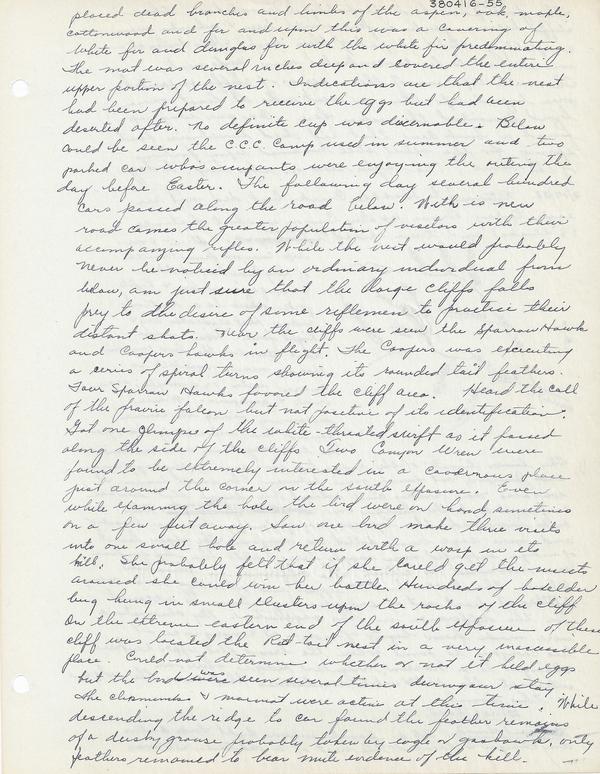 380416-55
placed dead branches and limbs of the aspen, oak, maple,
cottonwood and fir and upon this was a covering of
white fir and douglas fir with the white fir predominating.
The mat was several inches deep and covered the entire
upper portion of the nest. Indications are that the nest
had been prepared to receive the eggs but had been
deserted after. No definite cup was discernable. Below
could be seen the C.C.C. Camp used in summer and two
parked car whos occupants were enjoying the outing the
day before Easter. The following day several hundred
cars passed along the road below. With is new
road comes the greater population of visitors with their
accompanying rifles. While the nest would probably
never be noticed by an ordinary individual from
below, am just sure that the large cliffs falls
prey to the desire of some riflemen to practice their
distant shots. Near the cliffs were seen the Sparrow Hawk
and Coopers hawks in flight. The Coopers was executing
a series of spiral turns showing its rounded tail feathers.
Four Sparrow Hawks favored the cliff area. Heard the call
of the prairie falcon but not positive of its identification.
Got one glimpse of the white-throated swift as it passed
along the side of the cliffs Two Canyon Wren were
found to be extremely interested in a cavernous place
just around the corner in the south exposure. Even
while examining the hole the bird were on hand, sometimes
on a few feet away. Saw one bird make three visits
into one small hole and return with a wasp in its
bill. She probably felt that if she could get the insects
aroused she could win her battle. Hundreds of boxelder
bug hung in small clusters upon the rocks of the cliff
On the extreme eastern end of the south exposure of these
cliff was located the Red-tail nest in a very inaccessible
place. Could not determine whether or not it held eggs
but the bird was seen several times during our stay
The chipmunks & marmot were active at this time. While
descending the ridge to car found the feather remains
of a dusky grouse probably taken by eagle or goshawk, only
feathers remained to bear mute evidence of the kill.